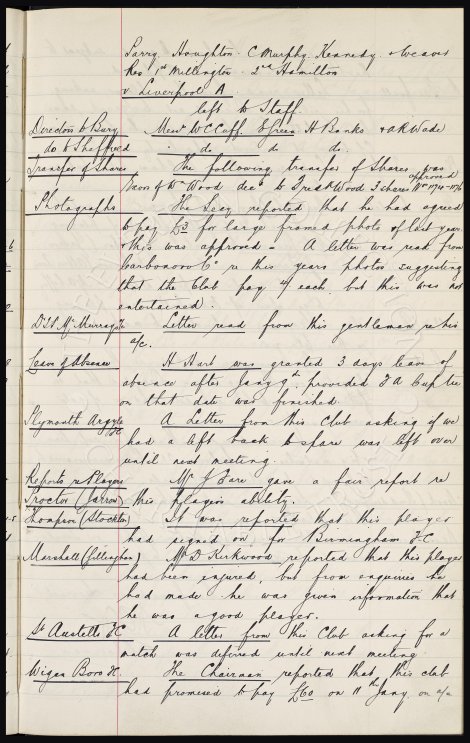 Parry. Houghton. C Murphy. Kennedy. & Weaver
Res 1st Millington. 2nd Hamilton
v Liverpool A.
left to Staff.
Directors to Bury Messrs W C Cuff. E Green. H Banks & A R Wade
do to Sheffield do do do.
Transfer of Shares The following transfer of Shares was approved
of W Wood decd to Wood 3 shares Nos 1174-1176
Photographs The Secy reported that he had agreed
to pay £3 for large framed photo of last year
& this was approved - A letter was read from
Carbonoro Co re this years photos suggesting
that the Club pay of each but this was not
entertained.
Dr McMurray Letter read from this gentleman re his
a/c.
Leave of Absence H Hart was granted 3 days leave of
absence after Jany 9th provided F A Cup tie
on that date was finished.
Plymouth Argyle FC A Letter from this Club asking if we
had a left back to spare was left over
until next meeting.
Reports re Players Mr J Fare gave a fair report re
Proctor (Jarrow) this players ability.
Thompson (Stockton) It was reported that this player
had signed on for Birmingham FC
Marshall (Gillingham) Mr D Kirkwood reported that this player
had been injured, but from enquiries he
had made he was given information that
he was a good player.
St Austells FC A letter from this Club asking for a
match was deferred until next meeting
Wigan Boro FC. The Chairman reported that this club
had promised to pay £60 on 11th Jany. on a/c